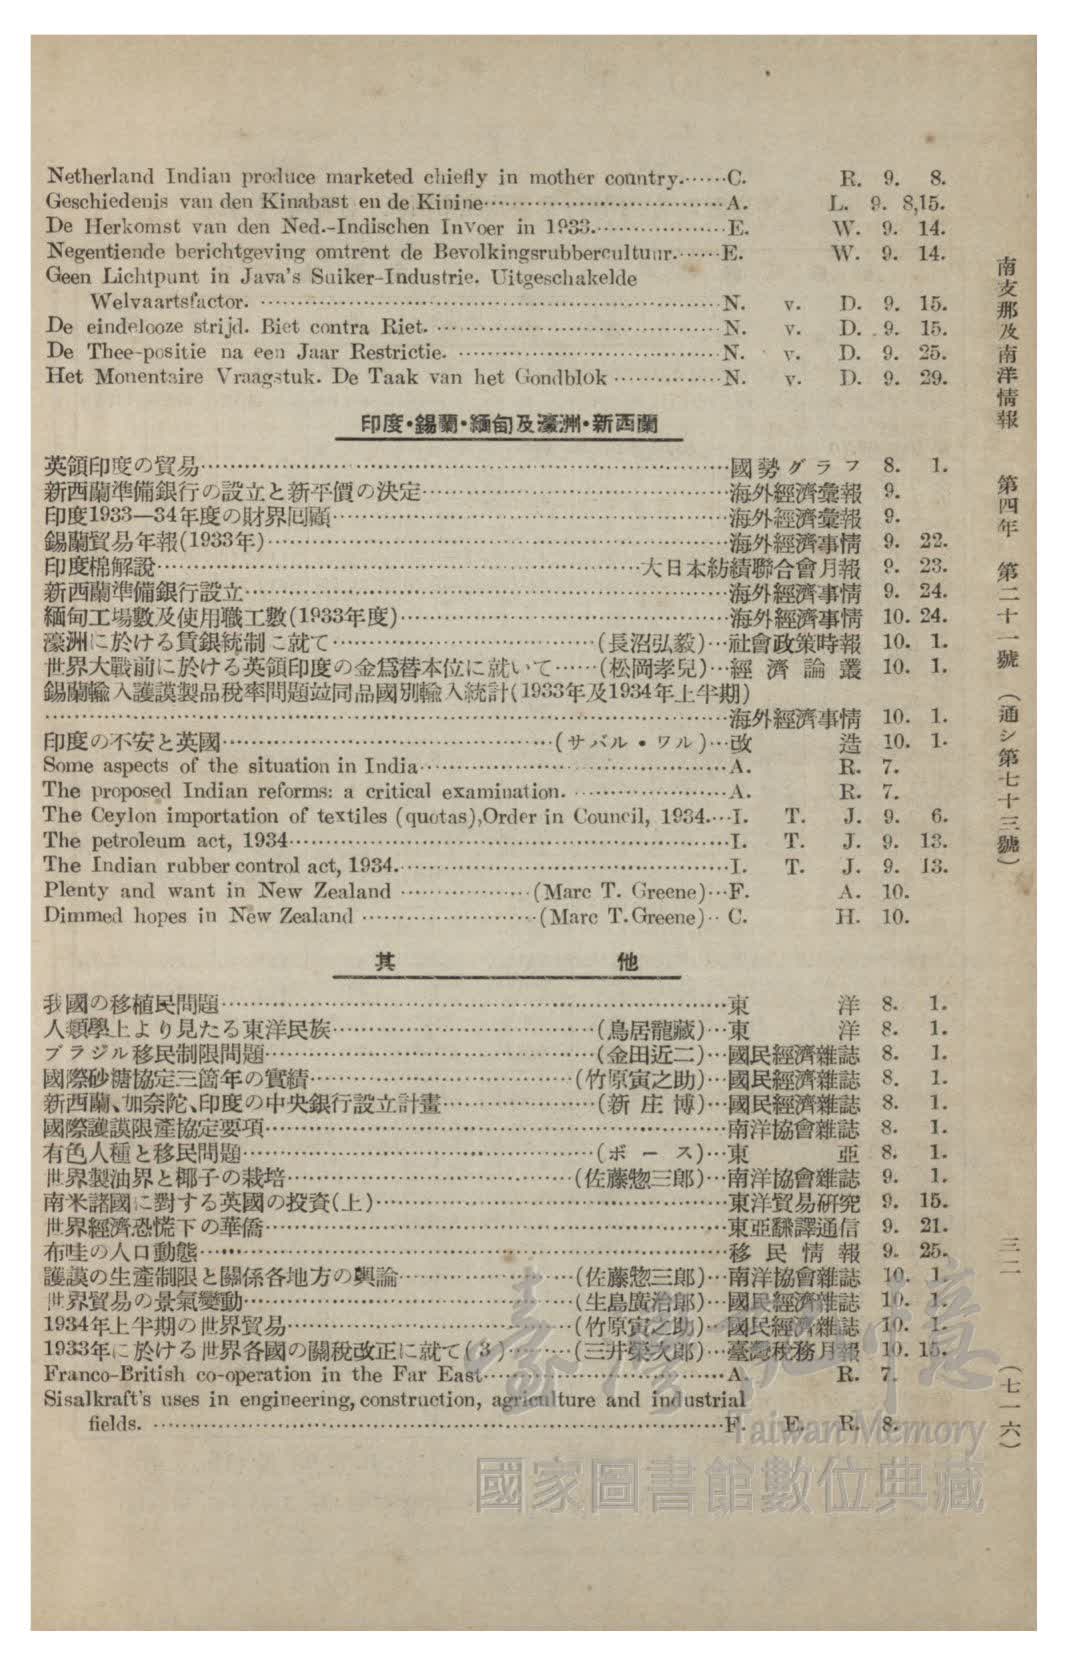 Netherland Indian produce marketed chiefly in mother country.……C. R. 9. 8.
Geschiedenis van den Kinabast en de Kinine……………………………A. L. 9. 8,15.
De Herkomst van den Ned.-Indischen Invoer in 1933.………………E. W. 9. 14.
Negentiende berichtgeving omtrent de Bevolkingsrubbercultuur.……E. W. 9. 14.
Geen Lichtpunt in Java's Suiker-Industrie. Uitgeschakelde
Welvaartsfactor. ……………………………………………………………N. v. D. 9. 15.
De eindelooze strijd. Biet contra Riet. …………………………………N. v. D. 9. 15.
De Thee-positie na een Jaar Restrictie. ………………………………N. v. D. 9. 25.
Het Monentaire Vraagstuk. De Taak van het Gondblok ……………N. v. D. 9. 29.
印度・錫蘭・緬甸及濠洲・新西蘭
英領印度の貿易……………………………………………………………國勢グラフ 8. 1.
新西蘭準備銀行の設立と新平價の決定…………………………………海外經濟彙報 9.
印度1933—34年度の財界回顧……………………………………………海外經濟彙報 9.
錫蘭貿易年報(1933年)……………………………………………………海外經濟事情 9. 22.
印度棉解說……………………………………………………大日本紡績聯合會月報 9. 23.
新西蘭準備銀行設立………………………………………………………海外經濟事情 9. 24.
緬甸工場數及使用職工數(1933年度)……………………………………海外經濟事情 10. 24.
濠洲に於ける賃銀統制に就て……………………………(長沼弘毅)…社會政策時報 10. 1.
世界大戰前に於ける英領印度の金爲替本位に就いて……(松岡孝兒)…經濟論叢 10. 1.
錫蘭輸入護謨製品稅率問題竝同品國別輸入統計(1933年及1934年上半期)
………………………………………………………………………………海外經濟事情 10. 1.
印度の不安と英國……………………………………(サバル・ワル)…改造 10. 1.
Some aspects of the situation in India…………………………………A. R. 7.
The proposed Indian reforms: a critical examination. …………………A. R. 7.
The Ceylon importation of textiles (quotas),Order in Council, 1934.…I. T. J. 9. 6.
The petroleum act, 1934……………………………………………………I. T. J. 9. 13.
The Indian rubber control act, 1934.………………………………………I. T. J. 9. 13.
Plenty and want in New Zealand ………………(Marc T. Greene)…F. A. 10.
Dimmed hopes in New Zealand ……………………(Marc T.Greene)‥C. H. 10.
其他
我國の移植民問題…………………………………………………………東洋 8. 1.
人類學上より見たる東洋民族……………………………(鳥居龍藏)…東洋 8. 1.
ブラジル移民制限問題……………………………………(金田近二)…國民經濟雜誌 8. 1.
國際砂糖協定三箇年の實績……………………………(竹原寅之助)…國民經濟雜誌 8. 1.
新西蘭、加奈陀、印度の中央銀行設立計畫………………(新庄博)…國民經濟雜誌 8. 1.
國際護謨限產協定要項……………………………………………………南洋協會雜誌 8. 1.
有色人種と移民問題………………………………………(ボース)…東亞 8. 1.
世界製油界と椰子の栽培………………………………(佐藤惣三郎)…南洋協會雜誌 9. 1.
南米諸國に對する英國の投資(上)………………………………………東洋貿易硏究 9. 15.
世界經濟恐慌下の華僑……………………………………………………東亞飜譯通信 9. 21.
布哇の人口動態……………………………………………………………移民情報 9. 25.
護謨の生產制限と關係各地方の輿論…………………(佐藤惣三郎)…南洋協會雜誌 10. 1.
世界貿易の景氣變動……………………………………(生島廣治郎)…國民經濟雜誌 10. 1.
1934年上半期の世界貿易………………………………(竹原寅之助)…國民經濟雜誌 10. 1.
1933年に於ける世界各國の關稅改正に就て(3)………(三井榮次郎)…臺灣稅務月報 10. 15.
Franco-British co-operation in the Far East……………………………A. R. 7.
Sisalkraft's uses in engineering,construction, agriculture and industrial
fields. …………………………………………………………………………F. E. R. 8.
南支那及南洋情報 第四年 第二十一號 (通シ第七十三號) 三二 (七一六)
臺灣記憶
Taiwan Memory
國家圖書館數位典藏